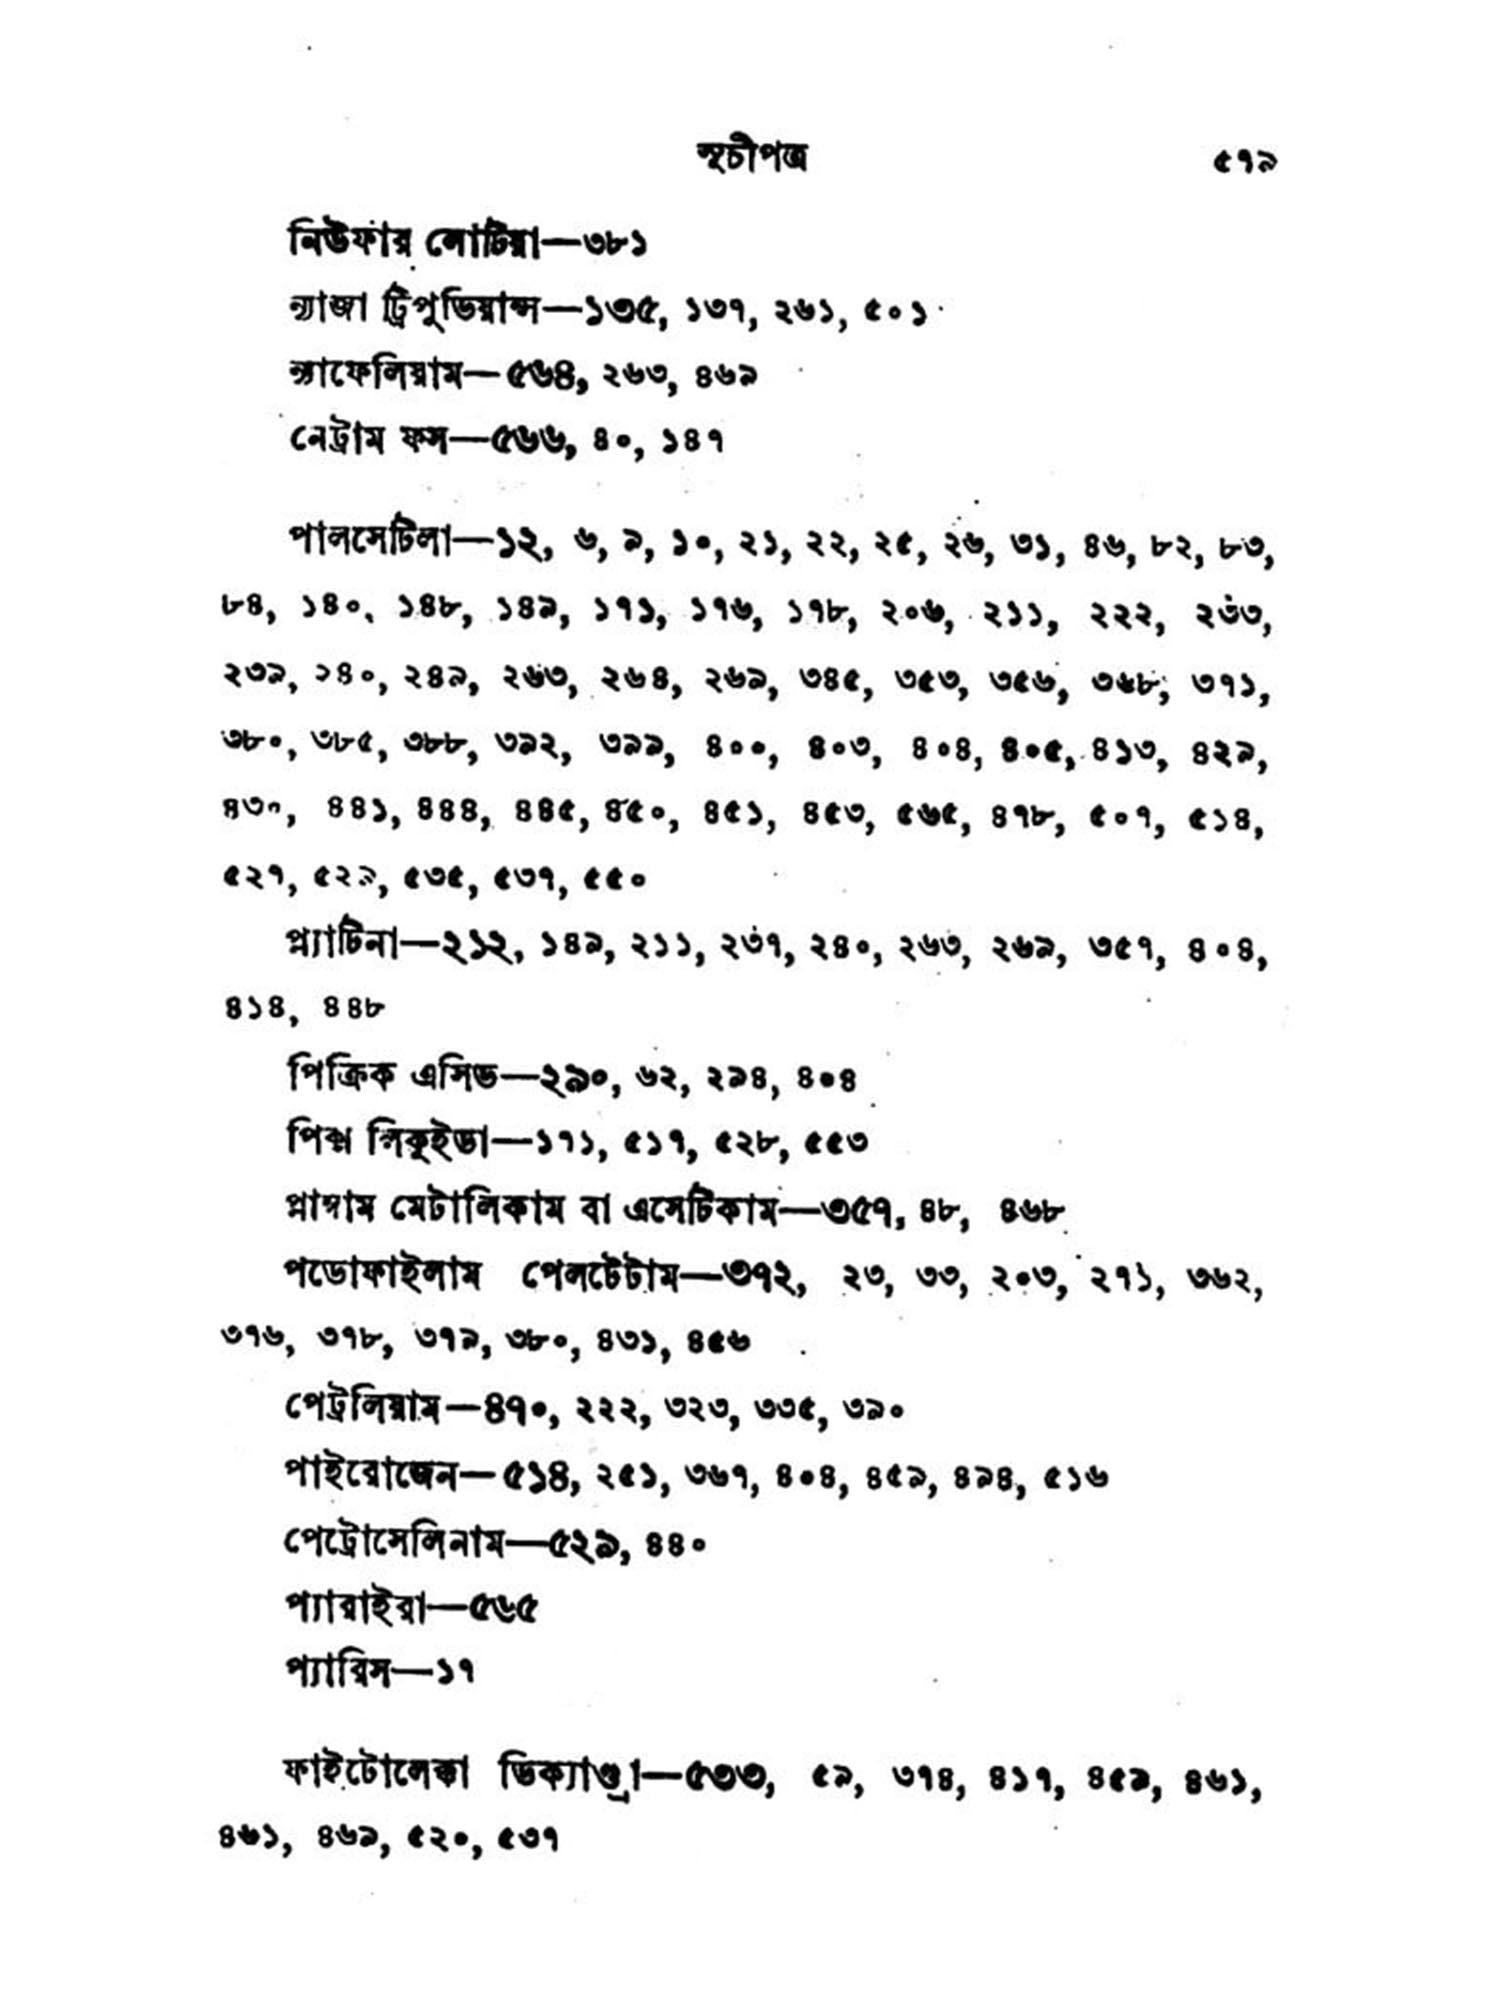 সূচীপত্র ৫৭৯
নিউফার লোটিয়া—৩৮১
ন্যাজা ট্রিপুডিয়ান্স—১৩৫, ১৩৭, ২৬১, ৫০১
ন্যাফেলিয়াম—৫৬৪, ২৬৩, ৪৬৯
নেট্রাম ফস—৫৬৬, ৪০, ১৪৭
পালসেটিলা—১২, ৬, ৯, ১০, ২১, ২২, ২৫, ২৬, ৩১, ৪৬, ৮২, ৮৩,
৮৪, ১৪০, ১৪৮, ১৪৯, ১৭১, ১৭৬, ১৭৮, ২০৬, ২১১, ২২২, ২৩৩,
২৩৯, ২৪০, ২৪৯, ২৬৩, ২৬৪, ২৬৯, ৩৪৫, ৩৫৩, ৩৫৬, ৩৬৮, ৩৭১,
৩৮০, ৩৮৫, ৩৮৮, ৩৯২, ৩৯৯, ৪০০, ৪০৩, ৪০৪, ৪০৫, ৪১৩, ৪২৯,
৪৪১, ৪৪৪, ৪৪৫, ৪৫০, ৪৫১, ৪৫৩, ৫৬৫, ৪৭৮, ৫০৭, ৫১৪,
৫২৭, ৫২৯, ৫৩৫, ৫৩৭, ৫৫০
প্ল্যাটিনা—২১২, ১৪৯, ২১১, ২৩৭, ২৪০, ২৬৩, ২৬৯, ৩৫৭, ৪০৪,
৪১৪, ৪৪৮
পিক্রিক এসিড—২৯০, ৬২, ২৯৪, ৪০৪
পিক্স লিকুইডা—১৭১, ৫১৭, ৫২৮, ৫৫৩
প্লাম্বাম মেটালিকাম বা এসেটিকাম—৩৫৭, ৪৮, ৪৬৮
পডোফাইলাম পেলটেটাম—৩৭২, ২৩, ৩৩, ২০৩, ২৭১, ৩৬২,
৩৭৬, ৩৭৮, ৩৭৯, ৩৮০, ৪৩১, ৪৫৬
পেট্রলিয়াম—৪৭০, ২২২, ৩২৩, ৩৩৫, ৩৯০
পাইরোজেন—৫১৪, ২৫১, ৩৬৭, ৪০৪, ৪৫৯, ৪৯৪, ৫১৬
পেট্রোসেলিনাম—৫২৯, ৪৪০
প্যারাইরা—৫৬৫
প্যারিস—১৭
ফাইটোলেক্কা ডিক্যাণ্ড্রা—৫৩৩, ৫৯, ৩৭৪, ৪১৭, ৪৫৯, ৪৬১,
৪৬১, ৪৬৯, ৫২০, ৫৩৭